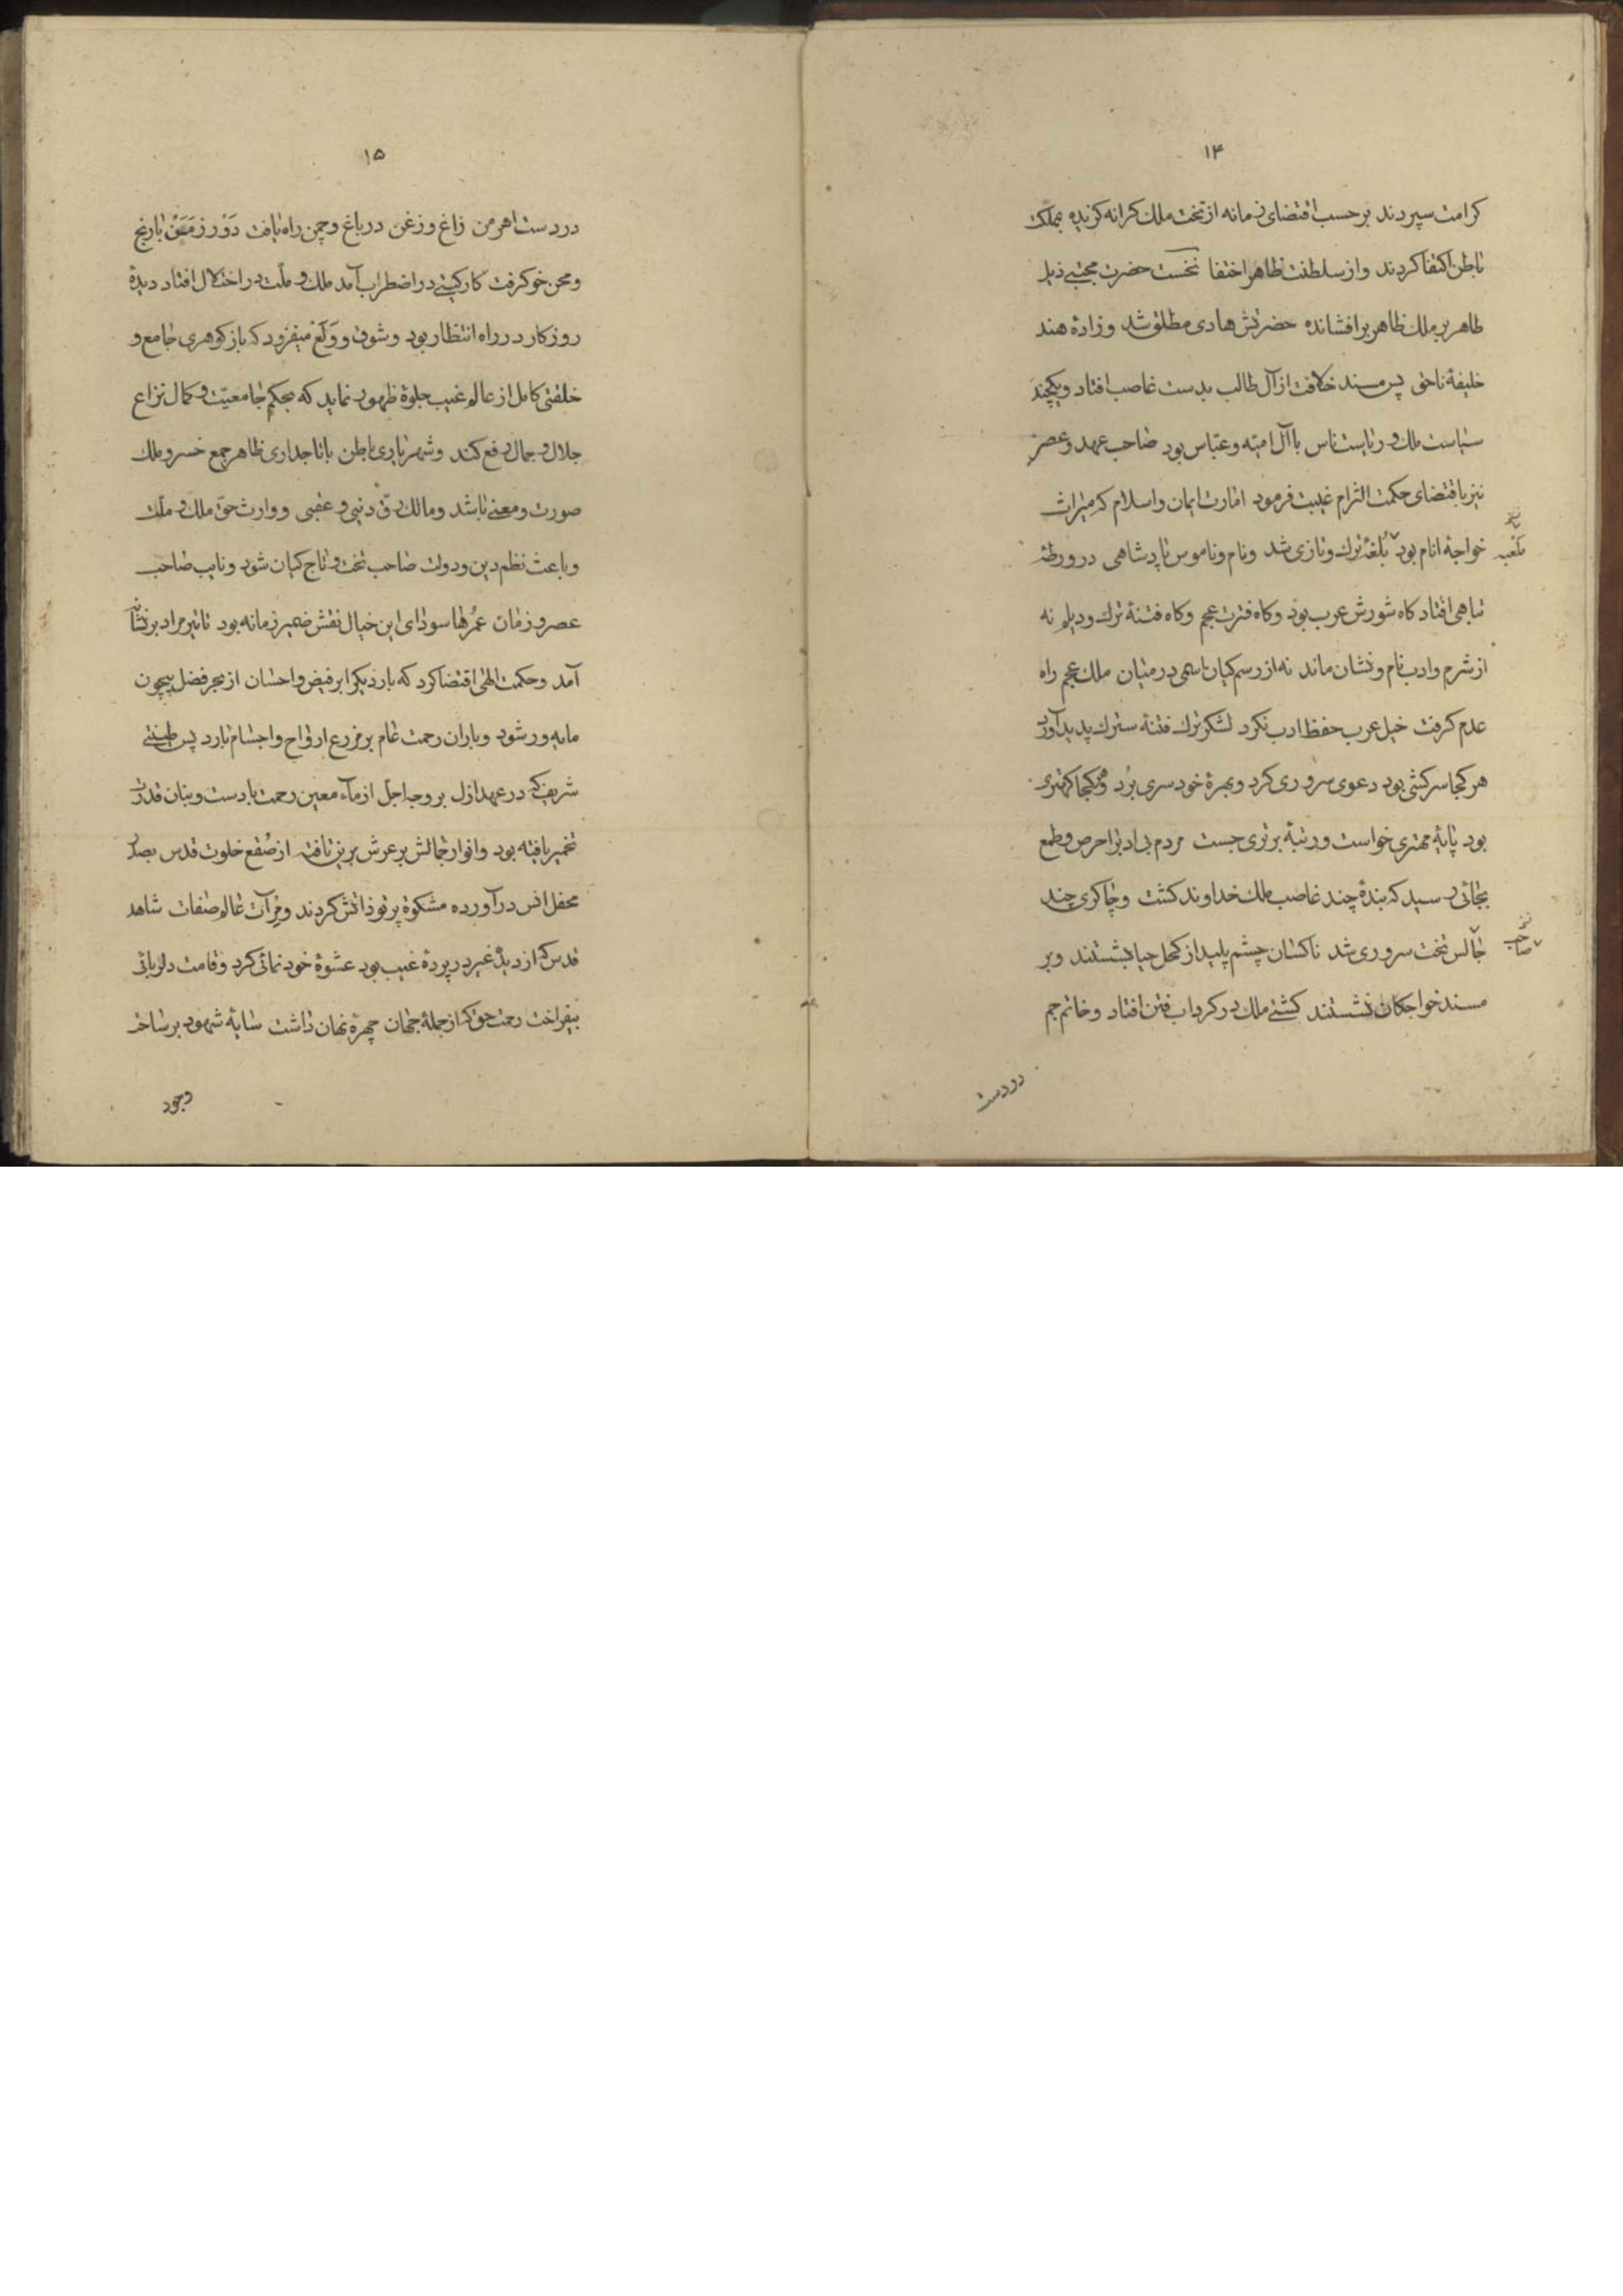 ۱۴
کرامت سپردند برحسب اقتضای زمانه از تخت ملک کرانه کزیده بملک
باطن اکتفا کردند و از سلطنت ظاهر اختفا نخست حضرت مجتبی ذیل
طاهر بر ملک ظاهر برافشانده حضرتش هادی مطلق شد و زادهٔ هند
خلیفهٔ ناحق پس مسند خلافت از آل طالب بدست غاصب افتاد و یکچند
سیاست ملک و ریاست ناس با آل امیّه و عبّاس بود صاحب عهد و عصر
نیز باقتضای حکمت التزام غیبت فرمود امارت ایمان و اسلام که میراث
خواجهٔ انام بود بُلغهٔ ترک و تازی شد و نام و ناموس پادشاهی در ورطهٔ
ملعبه
تباهی افتاد کاه شورش عرب بود و کاه فترت عجم و کاه فتنهٔ ترک و دیلم نه
از شرم و ادب نام و نشان ماند نه از رسم کیان اسمی در میان ملک عجم راه
عدم کرفت خیل عرب حفظ ادب نکرد لشکر ترک فتنهٔ سترک پدید آورد
هر کجا سرکشی بود دعوی سروری کرد و بهرهٔ خودسری برد و هر کجا کهتری
بود پایهٔ مهتری خواست و رتبهٔ برتری جست مردم بی ادب را حرص و طمع
بجائی رسید که بندهٔ چند غاصب ملک خداوند کشت و چاکری چند
جالس تخت سروری شد ناکسان چشم پلید از کحل حیا بشستند و بر
صاحب
مسند خواجکان نشستند کشتی ملک در کرداب فتن افتاد و خاتم جم
در دست
۱۵
در دست اهرمن زاغ و زغن در باغ و چمن راه یافت دَوْر زمَنْ با رنج
و محن خو کرفت کار کیتی در اضطراب آمد ملک و ملّت در اختلال افتاد دیدهٔ
روزکار در راه انتظار بود و شوق و وَلَع میفزود که باز کوهری جامع و
خلقتی کامل از عالم غیب جلوهٔ ظهور نماید که بحکم جامعیّت و کمال نزاع
جلال و جمال رفع کند و شهریاری باطن با تاجداری ظاهر جمع خسرو ملک
صورت و معنی باشد و مالک رقّ دنیی و عقبی و وارث حقّ ملک و ملّت
و باعث نظم دین و دولت صاحب تخت و تاج کیان شود و نایب صاحب
عصر و زمان عمرها سودای این خیال نقش ضمیر زمانه بود تا تیر مراد بر نشانه
آمد و حکمت الهی اقتضا کرد که بار دیکر ابر فیض و احسان از بحر فضل بیچون
مایه ور شود و باران رحمت عام بر مزرع ارواح و اجسام بارد پس طینتی
شریف که در عهد ازل بر وجه اجلّ از ماء معین رحمت با دست و بنان قدرت
تخمیر یافته بود و انوار جمالش بر عرش برین تافته از صُقع خلوت قدس بصدر
محفل انس درآورده مشکوة پرتو ذاتش کردند و مِرآت عالم صفات شاهد
قدس که از دیدهٔ غیر در پردهٔ غیب بود عشوهٔ خودنمائی کرد و قامت دلربائی
بیفراخت رحمت حق که از جملهٔ جهان چهرهٔ نهان داشت سایهٔ شهود بر ساحت
وجود